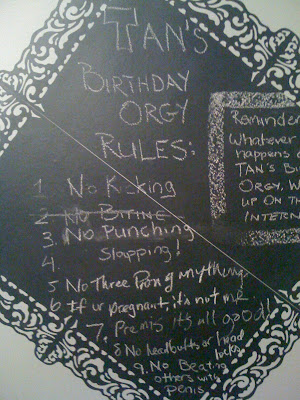 TAN'S
BIRTHDAY
ORGY
RULES:
1 No Kicking
2 No BITING
3. No Punching
4. Slapping!
5 No Three Prong anything
6. If ur pregnant, it's not me
7. Premis it's all good!
8 No headbutts or head
locks
9. No Beating
others with
penis
Reminder
Whatever
happens
TAN'S BI
ORGY, W
UP ON TH
INTERN